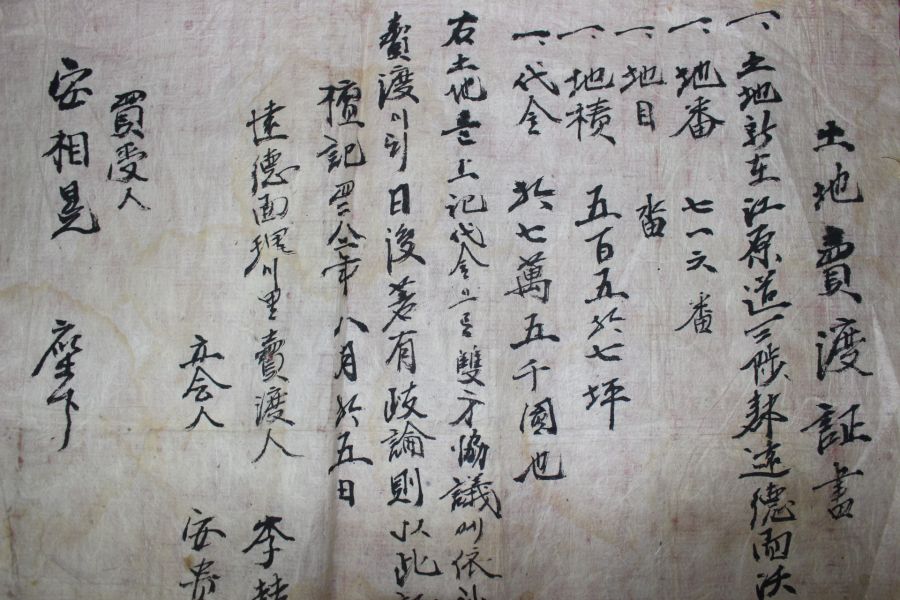 土地賣渡証書
一、土地所在江原道三陟郡遠德面沃
一、地番 七一六番
一、地目 畓
一、地積 五百五拾七坪
一、代金 拾七萬五千圜也
右土地를上記代金으로雙方協議에依
賣渡이되日後若有歧論則以此
檀記四二八 年八月拾五日
遠德面 川里賣渡人 李
立会人 安
買受人
安相晃 座下